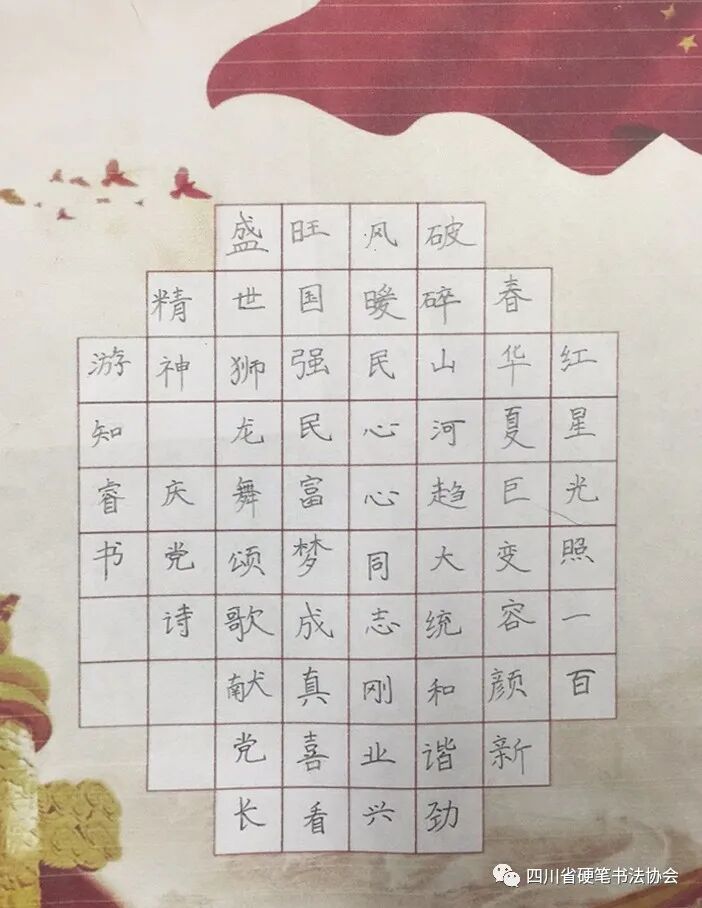 红星光照一百
春华夏巨变容颜新
破碎山河趋大统和谐劲
风暖民心心同志刚业兴
旺国强民富梦成真喜看
盛世狮龙舞颂歌献党长
精神 庆党诗
游知睿书
四川省硬笔书法协会